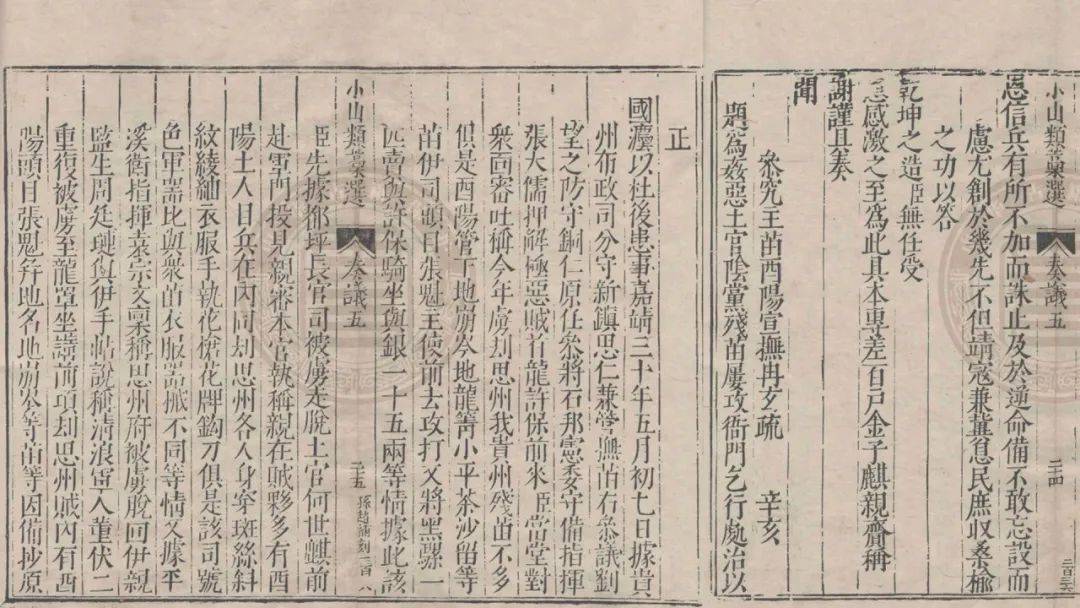 小山類藁選 奏議五 二十四
恩信兵有所不加而誅止及於逆命備不敢忘設而
慮尤創於幾先不但靖寇兼葺息民庶收桑榆
之功以答
乾坤之造臣無任受
恩感激之至為此具本專差百戶金子麒親齎稱
謝謹具奏
聞
參究王苗酉陽宣撫冉玄疏 辛亥
題為姦惡土官陰黨殘苗屢攻衙門乞行處治以
正
國灋以杜後患事嘉靖三十年五月初七日據貴
州布政司分守新鎮思仁兼管撫苗右參議劉
望之防守銅仁原任參將石邦憲委守備指揮
張大儒押解極惡賊首龍許保前來臣當堂對
衆面審吐稱今年虜刼思州我貴州殘苗不多
俱是酉陽管下地崩岑地龍箐小平茶沙留等
苗伊司頭目張魁主使前去攻打又將黑騾一
匹賣與許保騎坐與銀一十五兩等情據此該
小山類藁選 奏議五 二十五
臣先據邛坪長官司被虜走脫土官何世麒前
赴軍門投見親審本官執稱親在賊夥多有酉
陽土人目兵在內同刼思州各人身穿斑絲斜
紋綾紬衣服手執花槍花牌鈎刀俱是該司號
色軍器比與衆苗衣服器械不同等情又據平
溪衛指揮袁宗文稟稱思州府被虜脫回伊親
監生周廷璉與伊手帖說稱清浪軍人董伏二
重復被虜至龍罝坐講前項刼思州賊內有酉
陽頭目張魁并地名地崩岑等苗等因備抄原